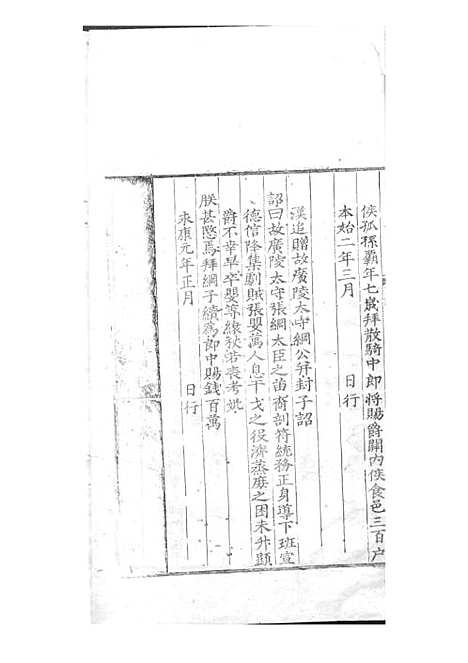 侯孤孫霸年七歲拜散騎中郎将賜爵關内侯食邑三百户
本始二年三月 日行
漢追贈故廣陵太守綱公并封子詔
詔曰故廣陵太守張綱大臣之苗裔剖符統務正身導下班宣
德信降集劇賊張嬰萬人息干戈之役濟蒸庶之困未升顯
爵不幸早卒嬰等縗杖若喪考妣
朕甚愍焉拜綱子續為郎中賜錢百萬
永康元年正月 日行